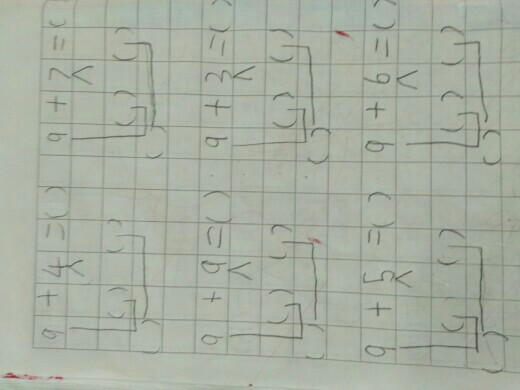 9 + 4 = ( ) 9 + 7 = ( )
( ) ( ) ( ) ( )
( ) ( )
9 + 9 = ( ) 9 + 3 = ( )
( ) ( ) ( ) ( )
( ) ( )
9 + 5 = ( ) 9 + 6 = ( )
( ) ( ) ( ) ( )
( ) ( )